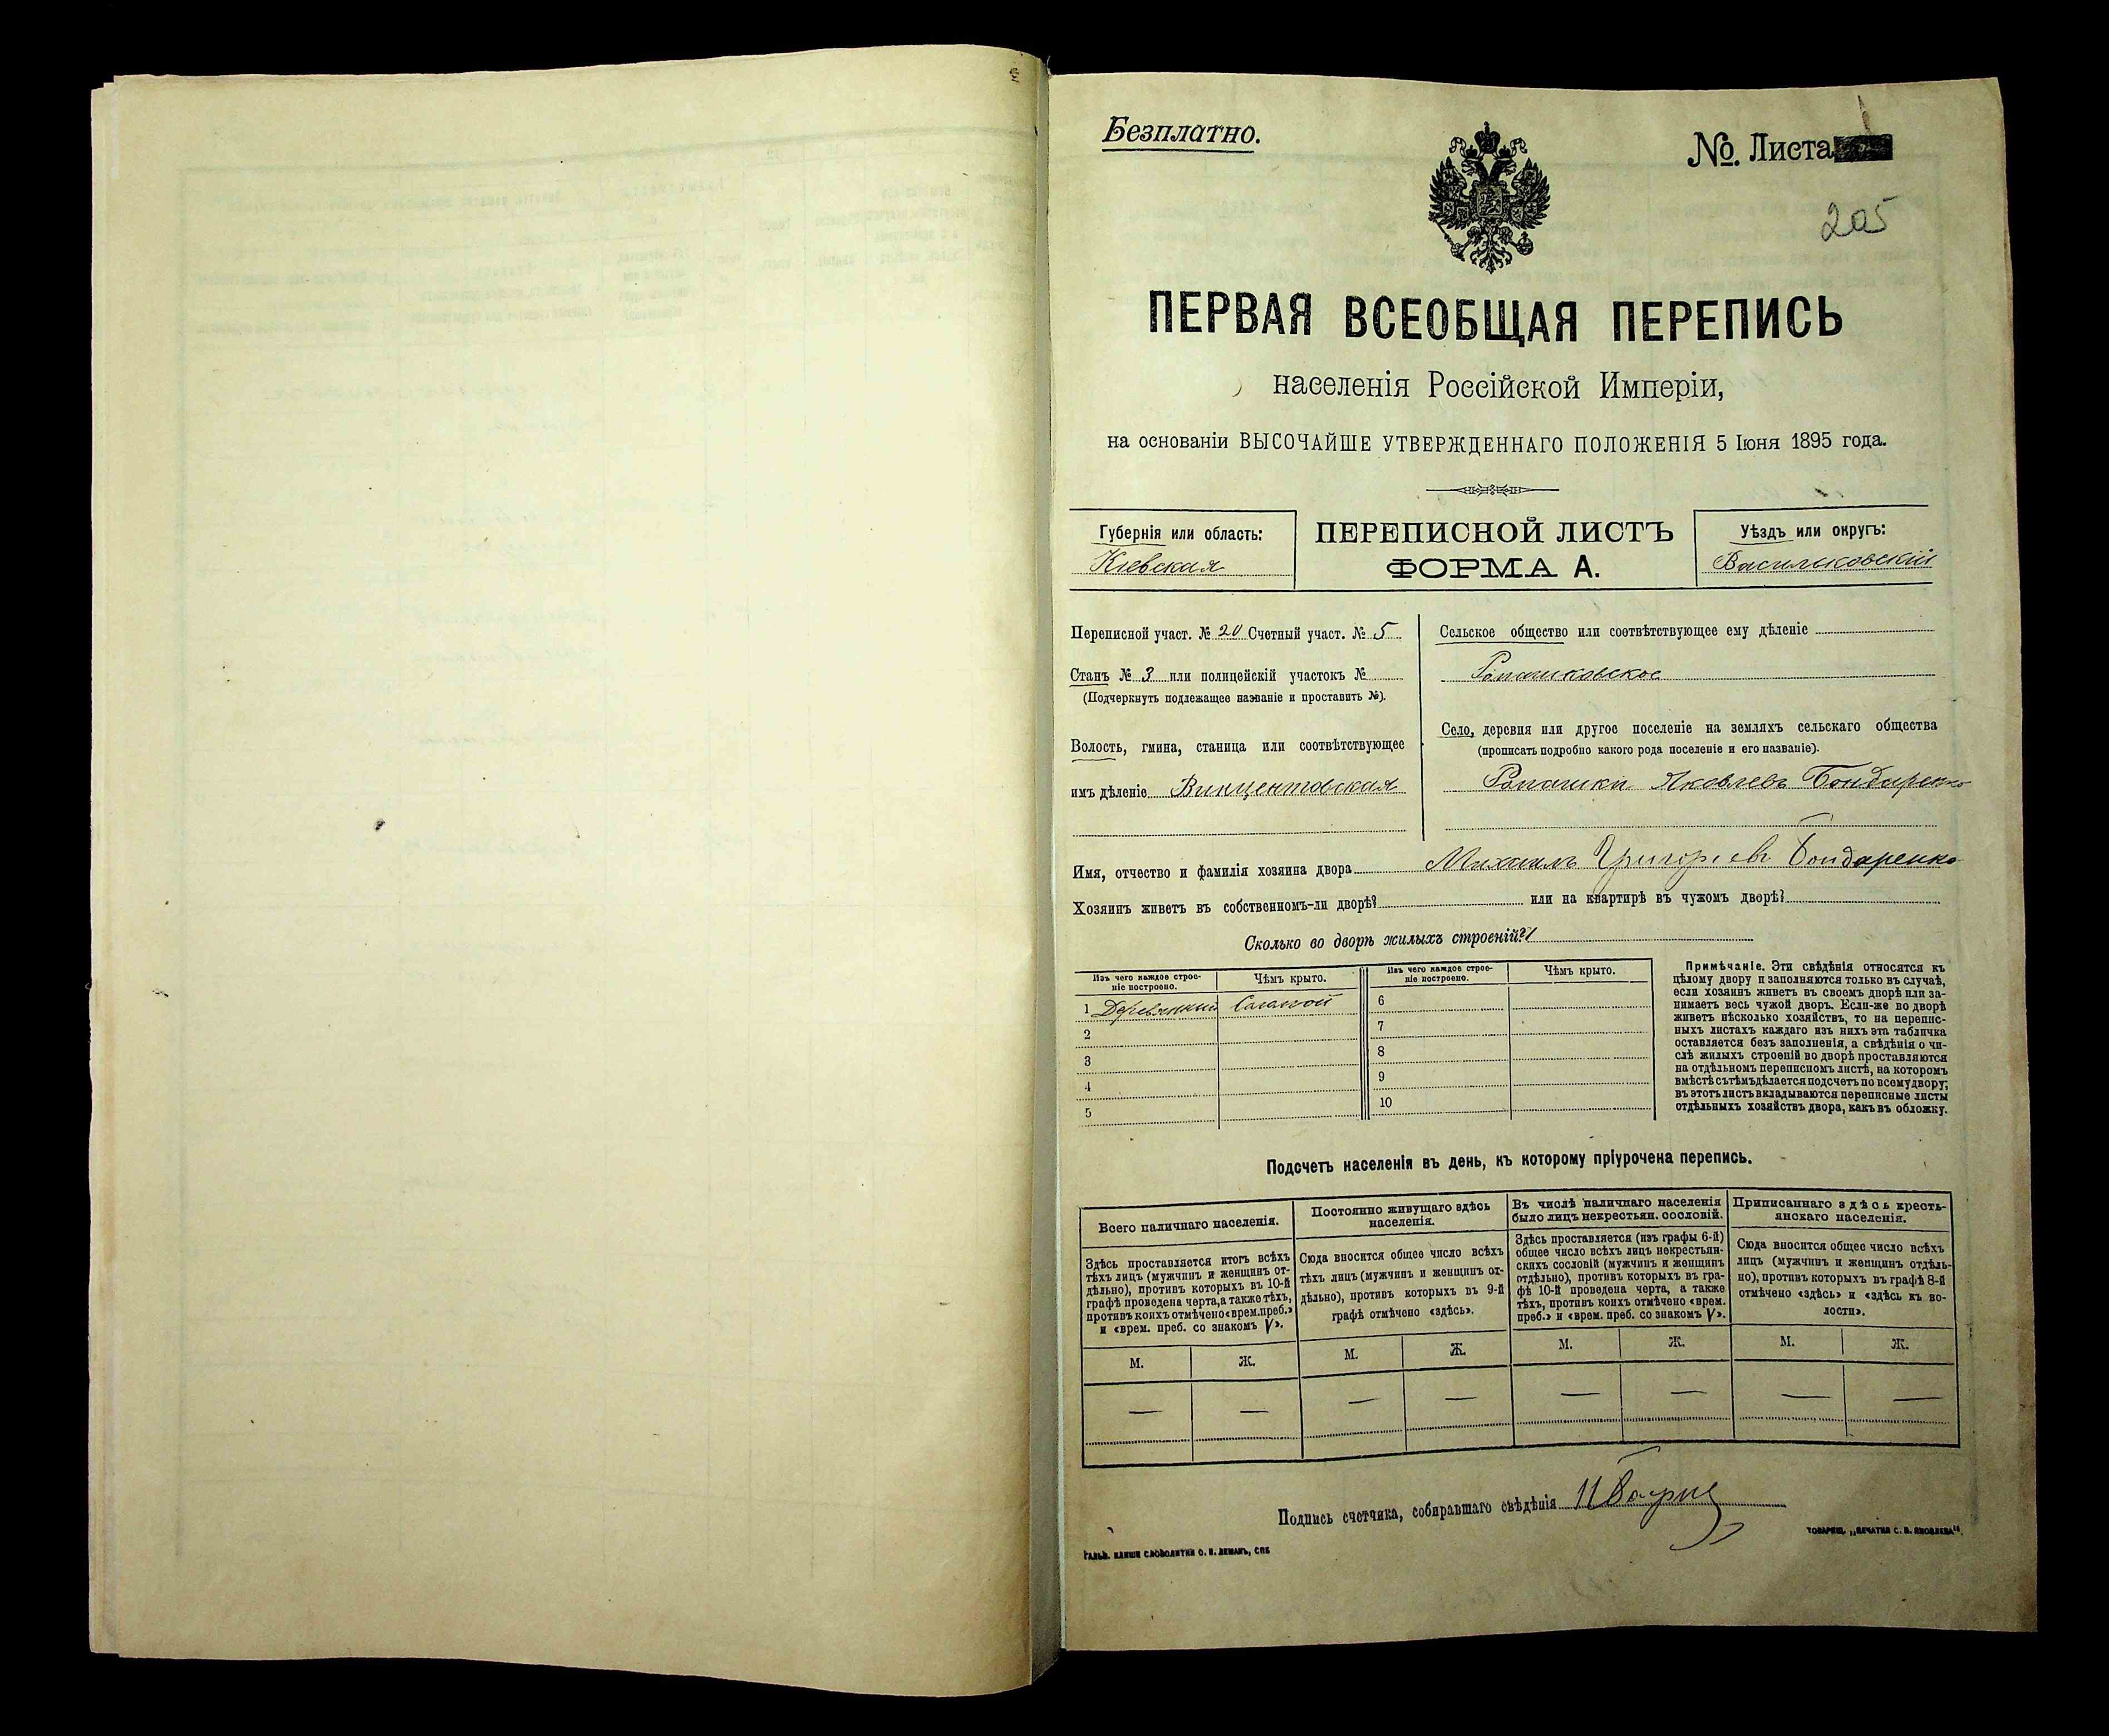 Безплатно.
№. Листа
205
ПЕРВАЯ ВСЕОБЩАЯ ПЕРЕПИСЬ
населенія Россійской Имперіи,
на основаніи ВЫСОЧАЙШЕ УТВЕРЖДЕННАГО ПОЛОЖЕНІЯ 5 Іюня 1895 года.
Губернія или область:
Кіевская
ПЕРЕПИСНОЙ ЛИСТЪ
ФОРМА А.
Уѣздъ или округъ:
Васильковскій
Переписной участ. № 20 Счетный участ. № 5
Станъ № 3 или полицейскій участокъ №
(Подчеркнуть подлежащее названіе и проставить №).
Волость, гмина, станица или соотвѣтствующее
имъ дѣленіе Винцентовская
Сельское общество или соотвѣтствующее ему дѣленіе
Ромашковское
Село, деревня или другое поселеніе на земляхъ сельскаго общества
(прописать подробно какого рода поселеніе и его названіе).
Ромашки Яковлевъ Бондаренко
Имя, отчество и фамилія хозяина двора Михаилъ Григоріевъ Бондаренко
Хозяинъ живетъ въ собственномъ-ли дворѣ? или на квартирѣ въ чужомъ дворѣ?
Сколько во дворѣ жилыхъ строеній? 1
Изъ чего каждое строе-
ніе построено.
Чѣмъ крыто.
Изъ чего каждое строе-
ніе построено.
Чѣмъ крыто.
1 Деревянный Соломой
2
3
4
5
6
7
8
9
10
Примѣчаніе. Эти свѣдѣнія относятся къ
цѣлому двору и заполняются только въ случаѣ,
если хозяинъ живетъ въ своемъ дворѣ или за-
нимаетъ весь чужой дворъ. Если-же во дворѣ
живетъ нѣсколько хозяйствъ, то на перепис-
ныхъ листахъ каждаго изъ нихъ эта табличка
оставляется безъ заполненія, а свѣдѣнія о чи-
слѣ жилыхъ строеній во дворѣ проставляются
на отдѣльномъ переписномъ листѣ, на которомъ
вмѣстѣ съ тѣмъ дѣлается подсчетъ по всему двору;
въ этотъ листъ вкладываются переписные листы
отдѣльныхъ хозяйствъ двора, какъ въ обложку.
Подсчетъ населенія въ день, къ которому пріурочена перепись.
Всего наличнаго населенія.
Здѣсь проставляется итогъ всѣхъ
тѣхъ лицъ (мужчинъ и женщинъ от-
дѣльно), противъ которыхъ въ 10-й
графѣ проведена черта, а также тѣхъ,
противъ коихъ отмѣчено «врем. преб.»
и «врем. преб. со знакомъ V».
М. Ж.
— —
Постоянно живущаго здѣсь
населенія.
Сюда вносится общее число всѣхъ
тѣхъ лицъ (мужчинъ и женщинъ от-
дѣльно), противъ которыхъ въ 9-й
графѣ отмѣчено «здѣсь».
М. Ж.
— —
Въ числѣ наличнаго населенія
было лицъ некрестьян. сословій.
Здѣсь проставляется (изъ графы 6-й)
общее число всѣхъ лицъ некрестьян-
скихъ сословій (мужчинъ и женщинъ
отдѣльно), противъ которыхъ въ гра-
фѣ 10-й проведена черта, а также
тѣхъ, противъ коихъ отмѣчено «врем.
преб.» и «врем. преб. со знакомъ V».
М. Ж.
— —
Приписаннаго здѣсь кресть-
янскаго населенія.
Сюда вносится общее число всѣхъ
лицъ (мужчинъ и женщинъ отдѣль-
но), противъ которыхъ въ графѣ 8-й
отмѣчено «здѣсь» и «здѣсь къ во-
лости».
М. Ж.
— —
Подпись счетчика, собиравшаго свѣдѣнія
ГАЛЬВ. КЛИШЕ СЛОВОЛИТНИ О. И. ЛЕМАНЪ, СПБ
ТОВАРИЩ. „ПЕЧАТНЯ С. П. ЯКОВЛЕВА".